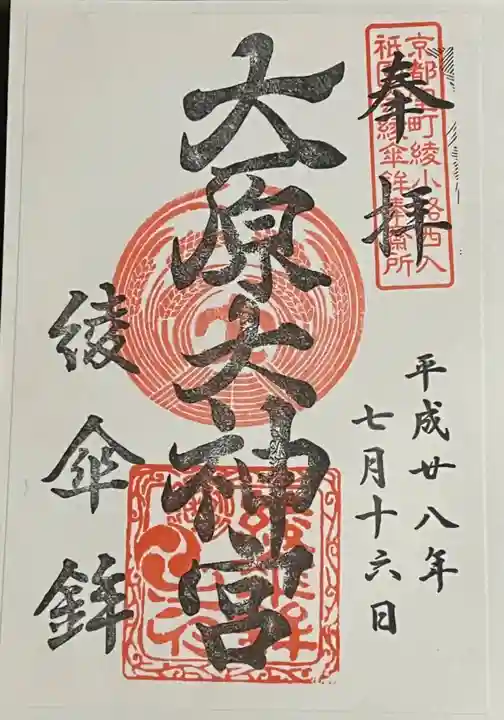 奉拝
京都 町綾小路西入
祇園 縁傘鉾 斎所
平成廿八年
七月十六日
大原大神宮
綾傘鉾